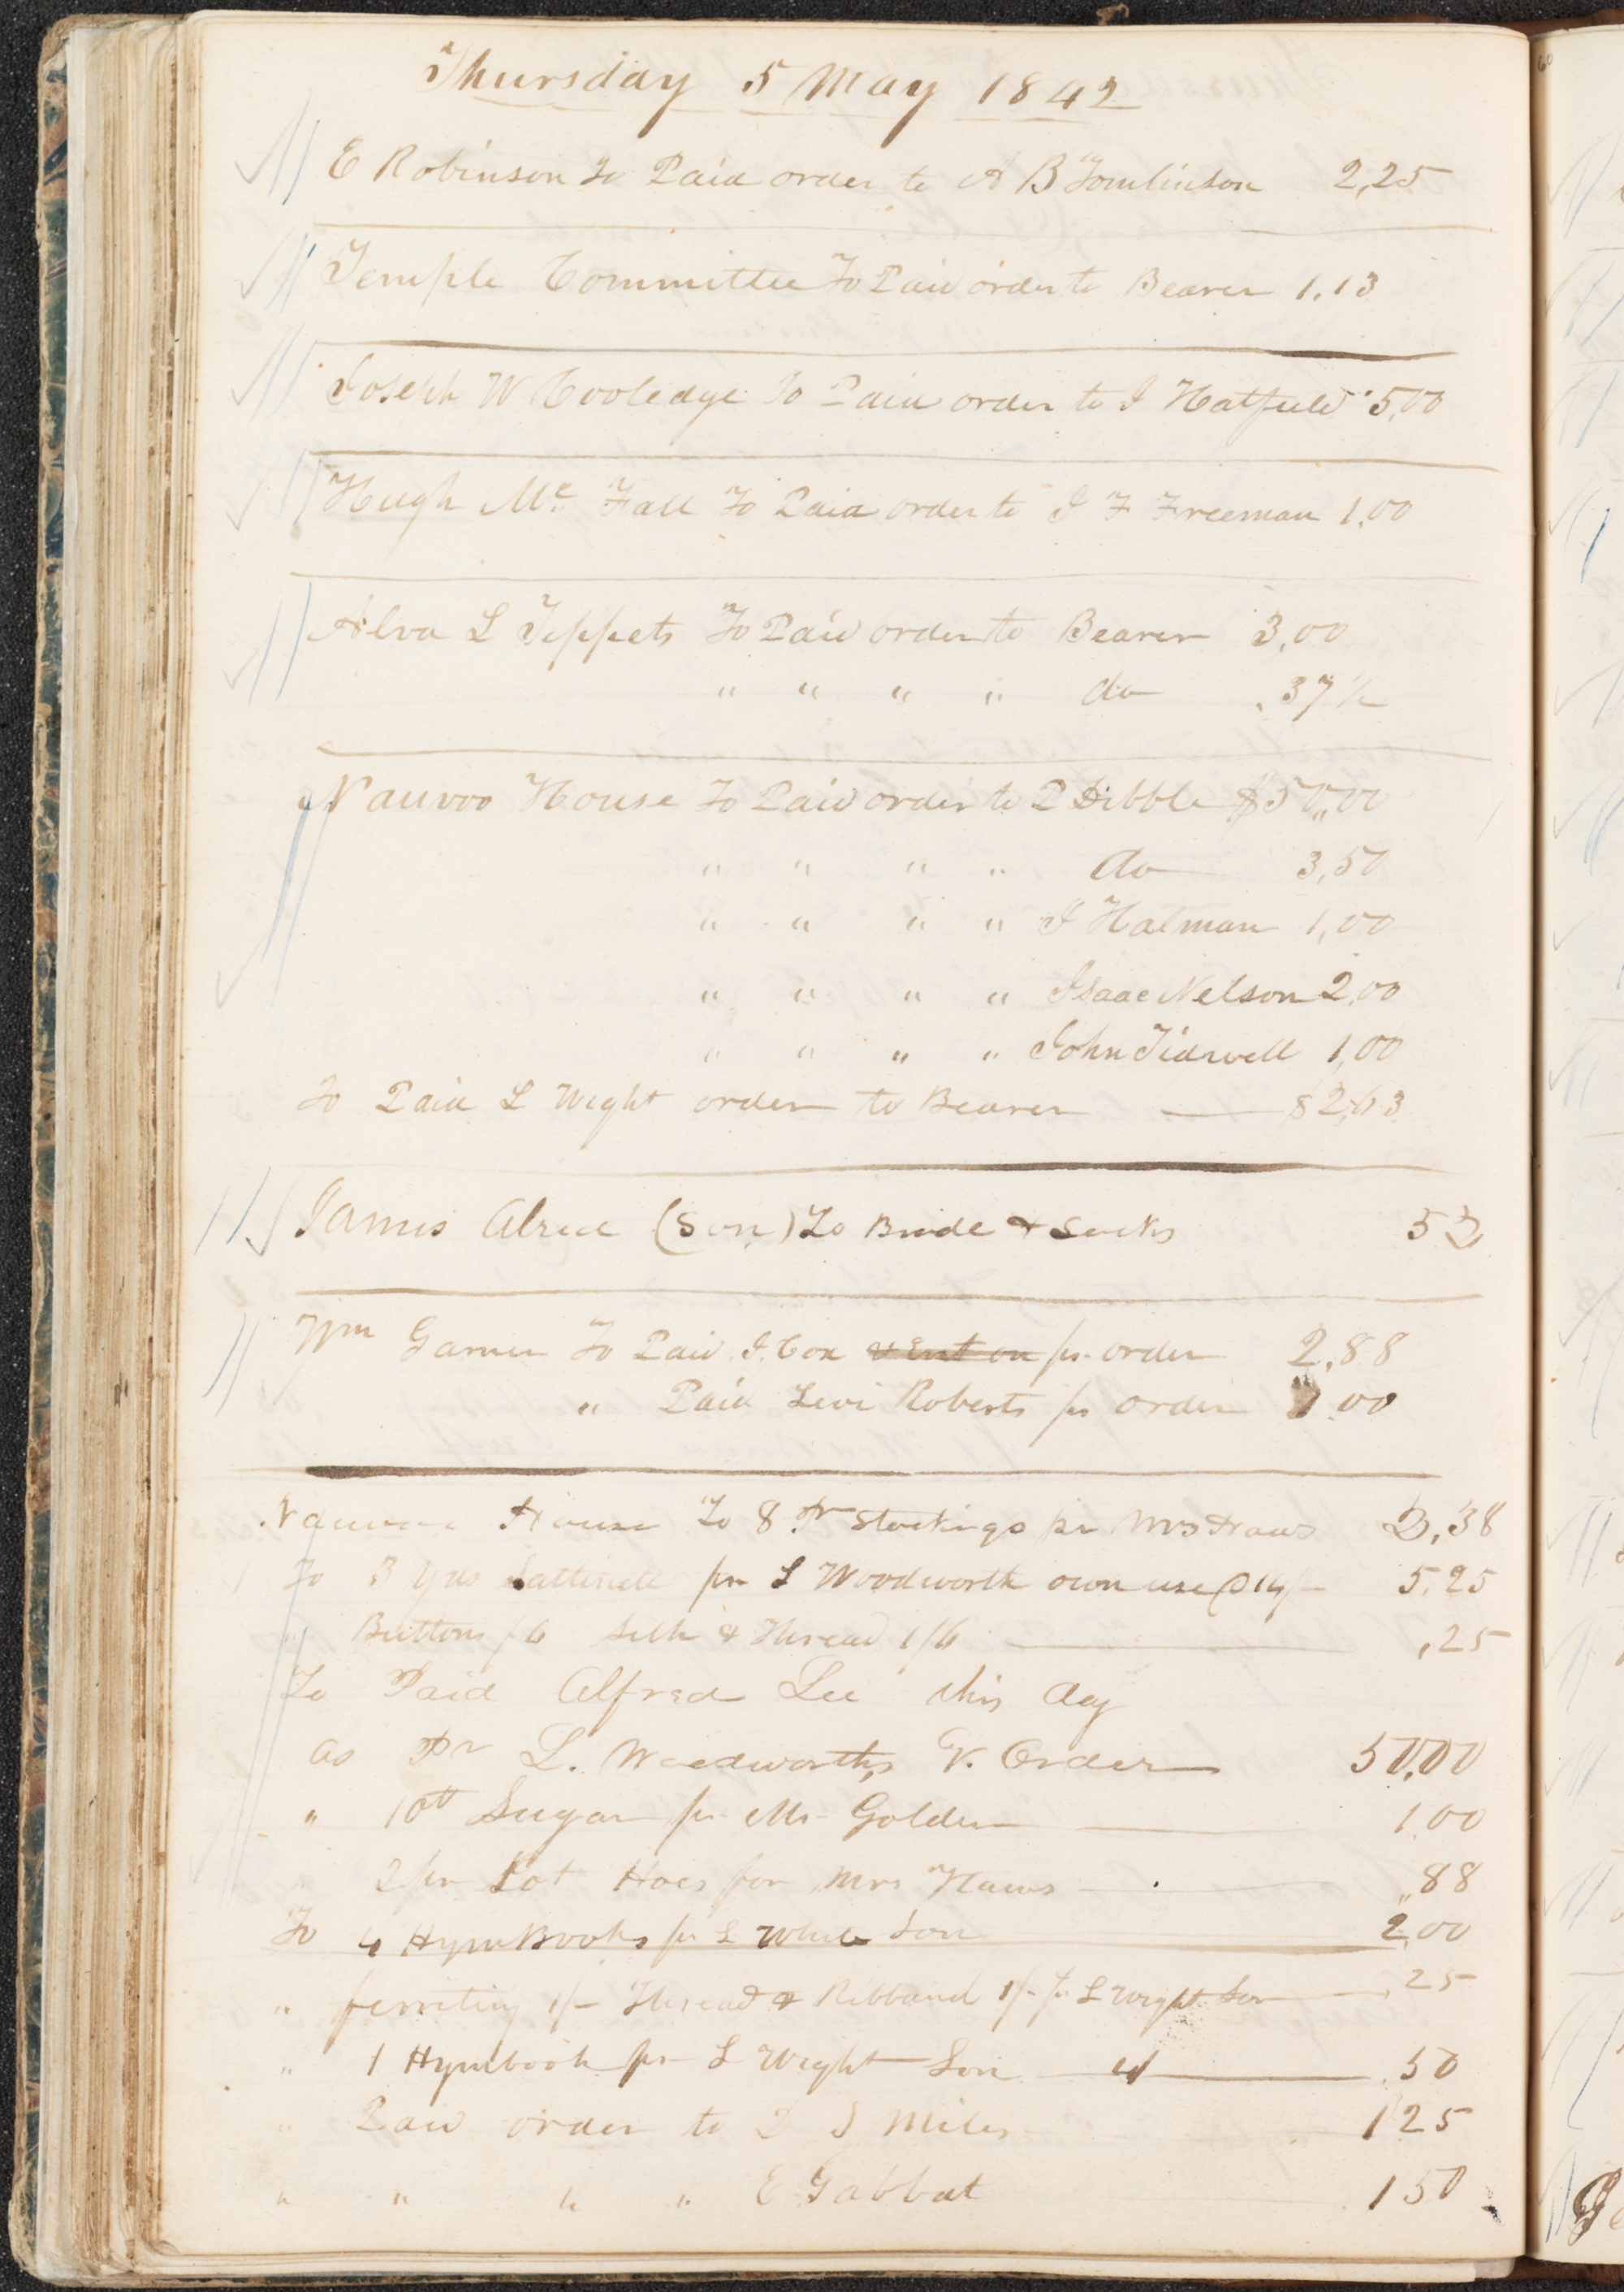 Thursday 5 May 1842
E Robinson To Paid order to A B Tomlinson 2,25
Temple Committee To Paid order to Bearer 1.13
Joseph W Cooledge To Paid order to J Hatfield 5,00
Hugh Mc Fall To Paid order to J F Freeman 1,00
Alva L Teppets To Paid order to Bearer 3,00
" " " " do .37½
Nauvoo House To Paid order to P Dibble $50,00
" " " " do 3,50
" " " " J Hatman 1,00
" " " " Isaac Nelson 2,00
" " " " John Tidwell 1,00
To Paid L Wight order to Bearer 82,63
James Alred (Son) To & Socks 5
Wm Garner To Paid J. Cox pr order 2,88
" Paid Levi Roberts pr order 1.00
Nauvoo House To 8 Pr Stockings pr Mrs Haws ,38
To 3 Yds Sattinett pr L Woodworth own use @ 14/- 5.25
" Buttons /6 Silk & Thread 1/6 ,25
To Paid Alfred Lee this day
as Pr L. Woodworths V. Order 50,00
" 10lb Sugar pr Mr Golden 1.00
2 pr Hoes for Mrs Haws ,,88
To 4 HymBooks pr L White Son 2,00
" ferriting 1/- Thread & Ribband 1/- pr L Wight Son ,25
" 1 Hymbook pr L Wight Son .50
" Paid order to J Miles 1 25
" " " " E Gabbut 1 50